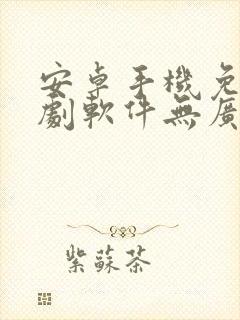 安卓手機免
劇軟件無廣
紫蘇茶